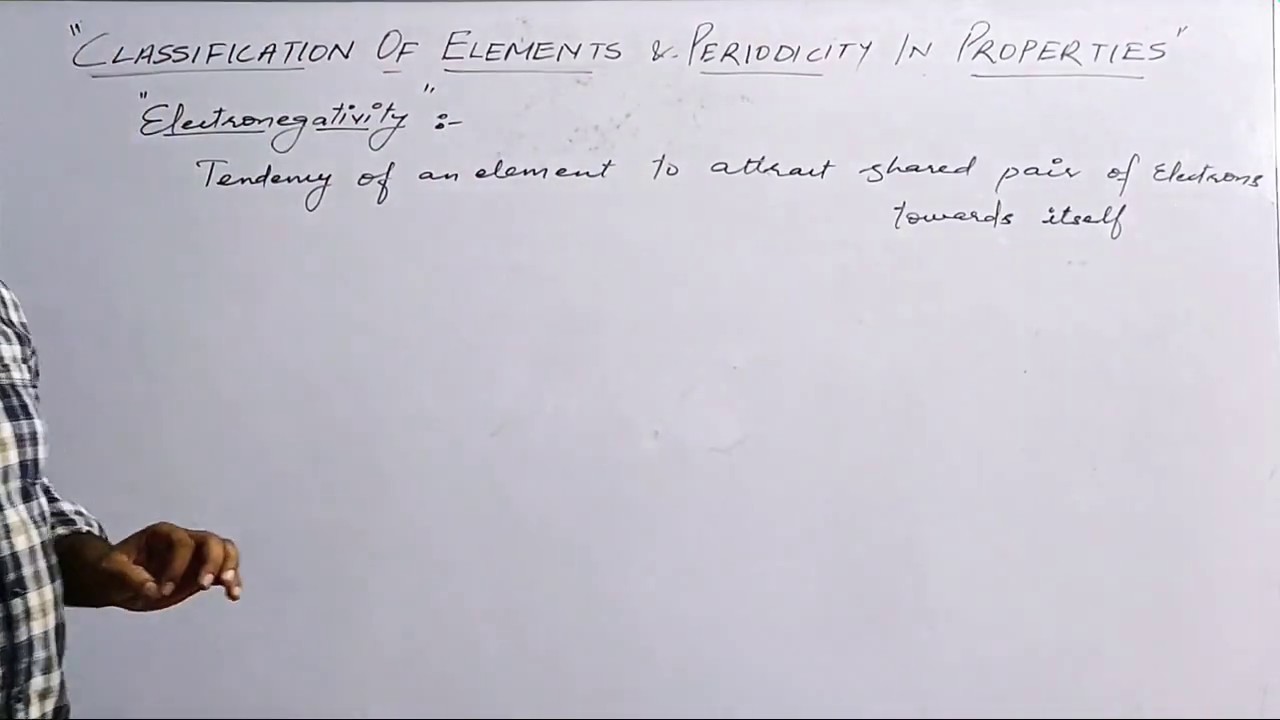 "CLASSIFICATION OF ELEMENTS & PERIODICITY IN PROPERTIES"
"Electronegativity" :-
Tendency of an element to attract shared pair of Electrons
towards itself